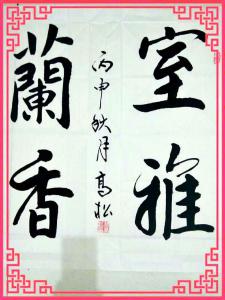 室雅
蘭香
丙申秋月高松